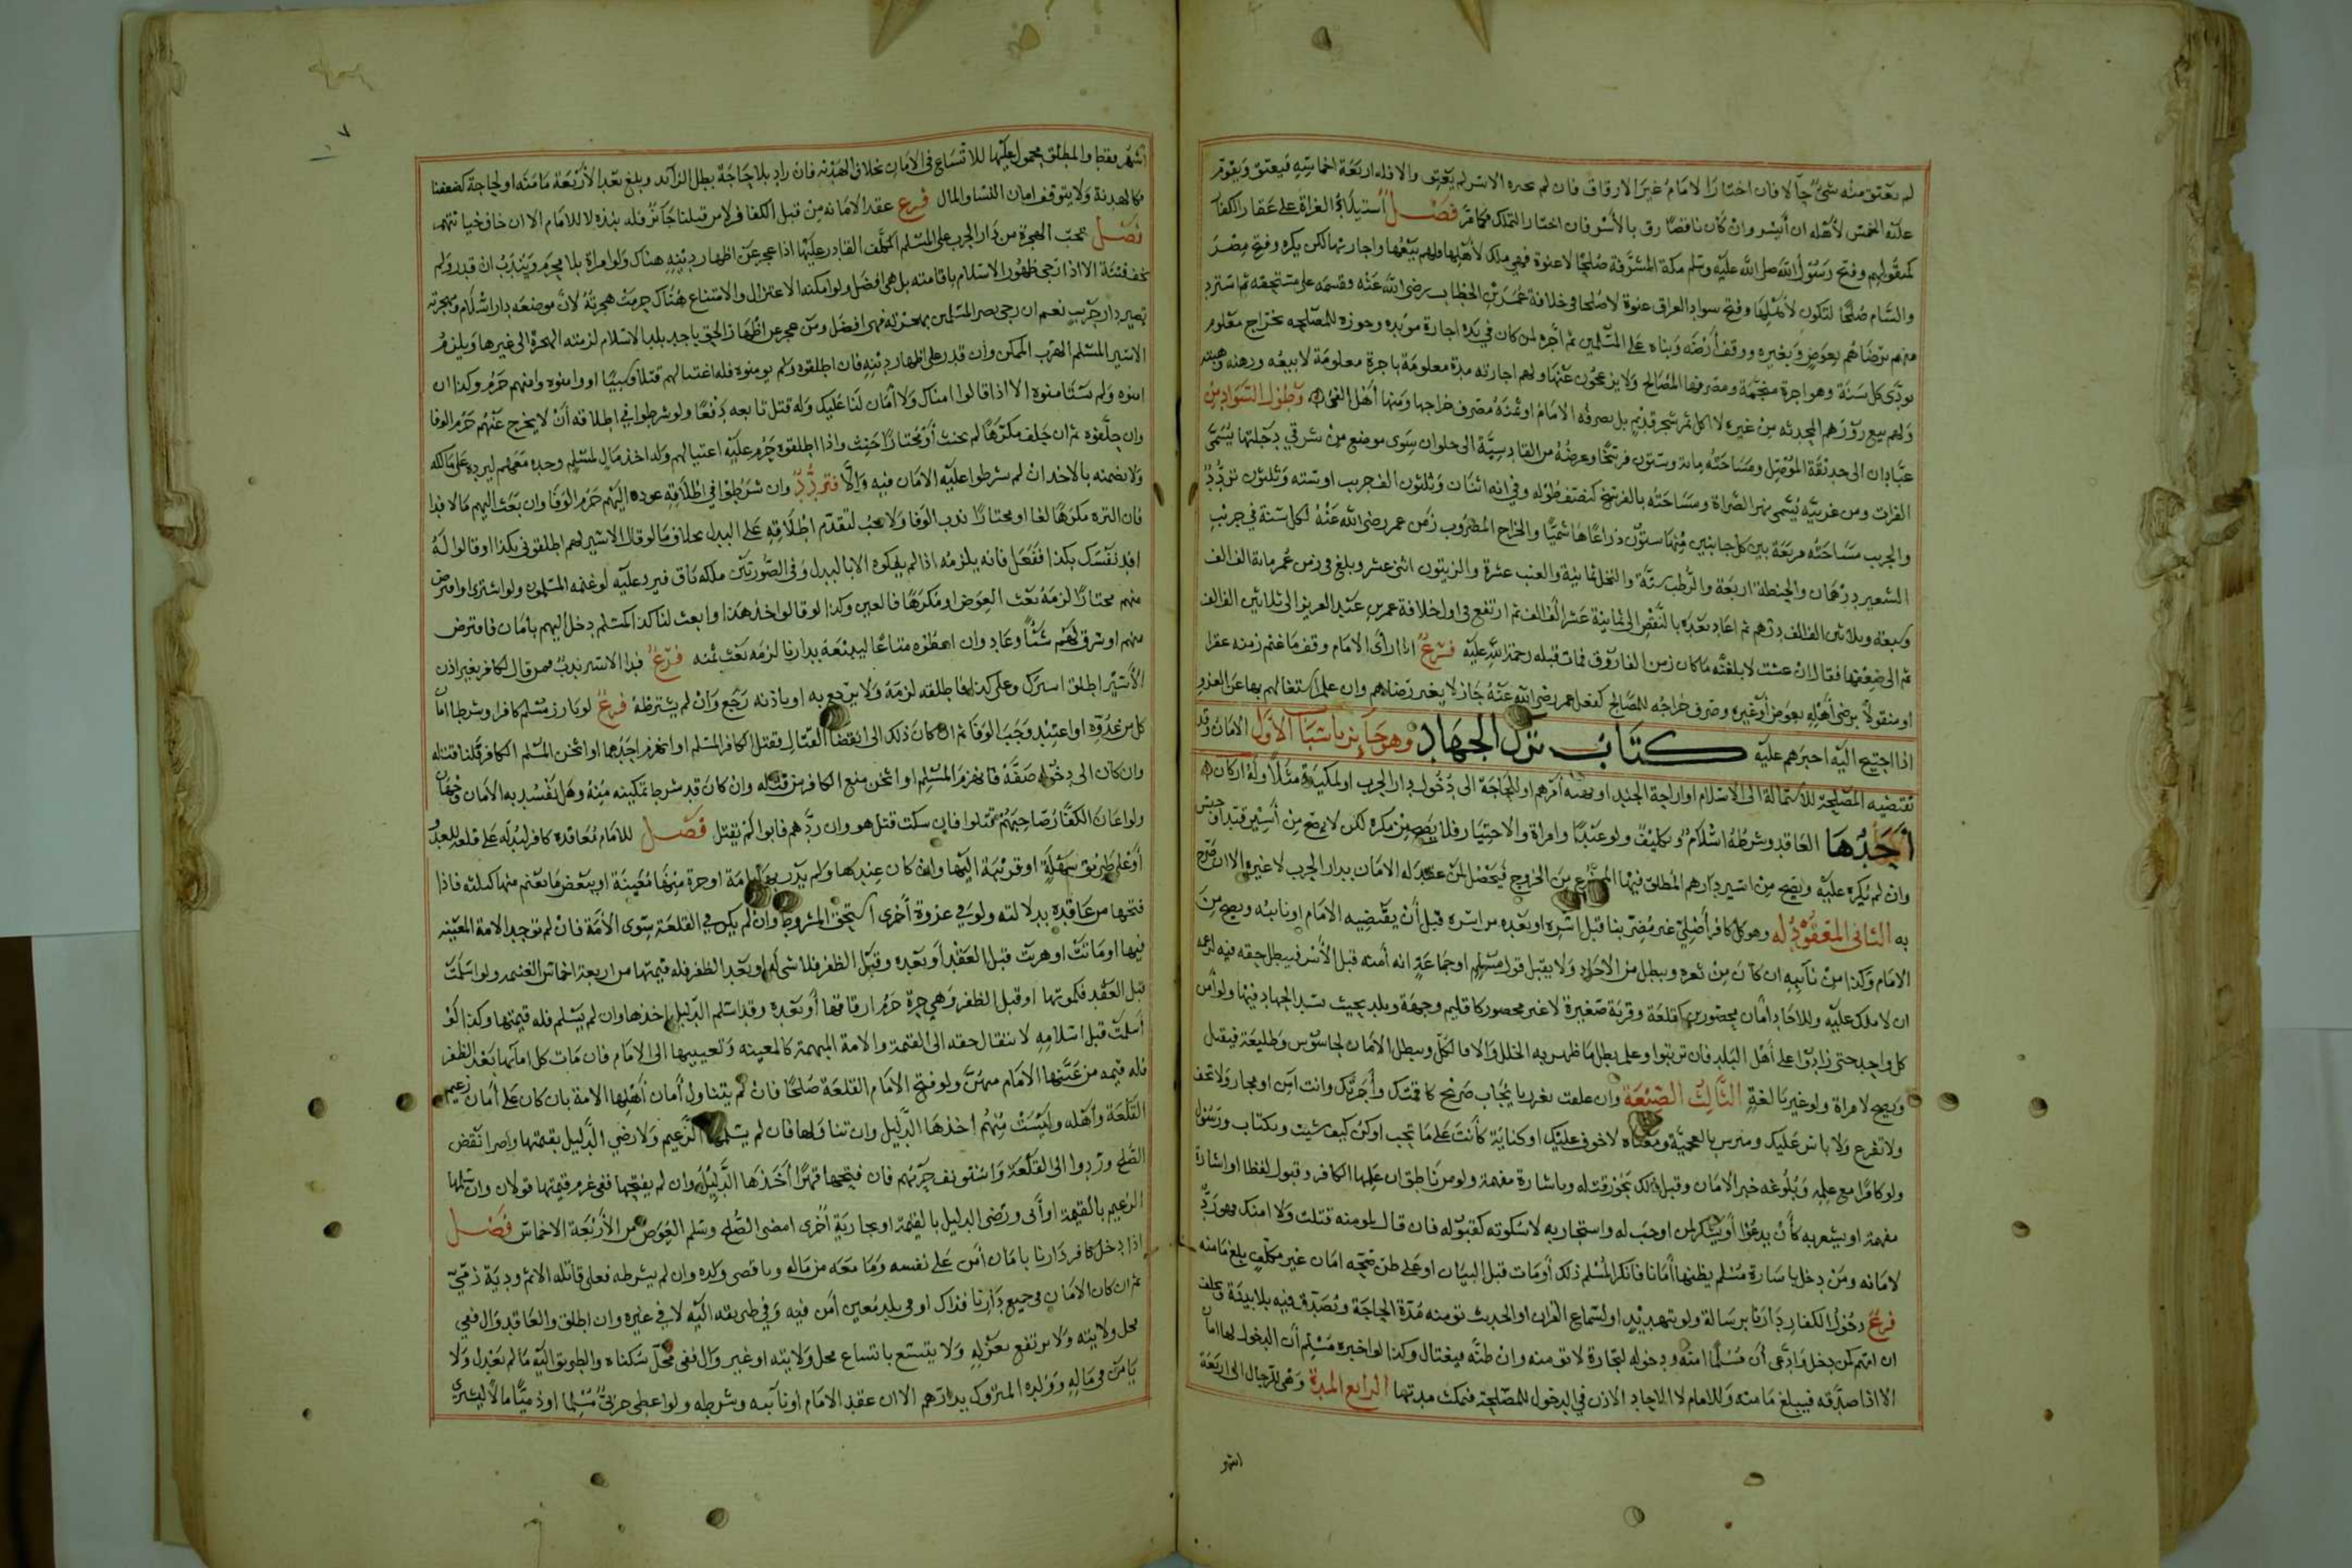 لم يعتق منه شيء حالا فان اختار الامام غير الارقاق فان لم يخيره الاسر لم يعتق والا فله اربعة اخماسه فيعتق ويقوم
عليه الخمس لاهله ان أيسر وان كان ناقصا رق بالأسر فان اختار التملك فكما مر فصل استيلاء الغزاة على عقار الكفار
كمنقولهم وفتح رسول الله صلى الله عليه وسلم مكة المشرفة صلحا لا عنوة فهي ملك لأهلها ولهم بيعها واجارتها لكن يكره وفتح مصر
والشام صلحا لتكون لأهلها وفتح سواد العراق عنوة لا صلحا في خلافة عمر بن الخطاب رضي الله عنه وقسمه على مستحقه ثم استرد
منهم برضاهم بعوض وبغيره ووقف أرضه وبناه على المسلمين ثم أجره لمن كان في يده اجارة مؤبدة وجوزه للمصلحة بخراج معلوم
يودى كل سنة وهو اجرة منجمة ومصرفها المصالح ولا يزعجون عنها ولهم اجارته مدة معلومة باجرة معلومة لا بيعه ورهنه وهبته
ولهم بيع زرعهم المحدثه من غيره لا اكل ثمر شجر قديم بل يصرفه الامام او ثمنه مصرف خراجها ومنها أهل الفيء وطول السواد من
عبادان الى حديقة الموصل ومساحته مائة وستون فرسخا وعرضه من القادسية الى حلوان سوى موضع من شرقي دجلتها يسمى
الفرات ومن غربيه يسمى نهر الصراة ومساحته بالفرسخ كنصف طوله وفي انه اثنان وثلثون الف جريب او ستة وثلثون تردد
والجريب مساحته مربعة بين كل جانبين منها ستون ذراعا هاشميا والخراج المضروب زمن عمر رضي الله عنه لكل سنة في جريب
الشعير درهمان والحنطة اربعة والرطب ستة والنخل ثمانية والعنب عشرة والزيتون اثني عشر وبلغ في زمن عمر مائة الف الف
وسبعة وثلاثين الف الف درهم ثم اعاد بعده بالنقص الى ثمانية عشر الف الف ثم ارتفع في اول خلافة عمر بن عبد العزيز الى ثلاثين الف الف
ثم الى ضعفها فقال ان عشت لابلغنه ما كان زمن الفاروق فمات قبله رحمة الله عليه فرع اذا رأى الامام وقف ما غنم زمنه عقارا
او منقولا برضى أهله بعوض أو غيره وصرف خراجه للمصالح كفعل عمر رضي الله عنه جاز لا بغير رضاهم وان علم اشتغالهم بها عن الغزو
اذا احتيج اليه اجبرهم عليه كتاب ترك الجهاد وهو جائز باسباب الأول الامان وقد
تقتضيه المصلحة للاستمالة الى الاسلام او اراحة الجند او امرهم او للحاجة الى دخول دار الحرب او لمكيدة مثلا وله اركان
أحدها العاقد وشرطه اسلام وتكليف ولو عبدا وامراة والاختيار فلا يصح من مكره لكن لا يصح من أسير قيد او حبس
وان لم يكره عليه ويصح من اسير دارهم المطلق فيها الممنوع من الخروج فيحصل لمن عقد له الامان بدار الحرب لا غير الا ان صرح
به الثاني المعقود له وهو كل كافر أصلي غير مضر بنا قبل اسره او بعده من اسره قبل أن يقبضه الامام او نائبه ويصح من
الامام وكذا من نائبه ان كان من ثغره ويبطل من الاحاد ولا يقبل قول مسلم او جماعة انه أمنه قبل الأسر فيبطل حقه فيه
ان لا ملك عليه وللاحاد أمان محصورين كقلعة وقرية صغيرة لا غير محصور كاقليم وجهة وبلد بحيث يسد الجهاد فيها ولو أمن
كل واحد حتى زادوا على أهل البلد فان ترتبوا وعلم بطل ما ظهر به الخلل والا فالكل ويبطل الامان لجاسوس وطليعة فيقتل
ويصح لامراة ولو غير بالغة الثالث الصيغة وان علقت بغرر بايجاب صريح كامنتك وأجرتك وانت آمن او مجار ولا تخف
ولا تفزع ولا باس عليك ومترس بالعجمية ومعناه لا خوف عليك او كناية كأنت على ما تحب او كن كيف شيت وبكتاب ورسول
ولو كافرا مع علمه وبلوغه خبر الامان وقبل ذلك يجوز قتله وباشارة مفهمة ولو من ناطق ان علمها الكافر وقبول لفظا او اشارة
مفهمة او يشعر به كأن يدعوا أو يشكر لمن اوجب له واستجار به لا سكوته كقبوله فان قال لمومنه قتلت ولا امنك فهو رد
لامانه ومن دخل باشارة مسلم يظنها أمانا فانكر المسلم ذلك أو مات قبل البيان او على ظن صحة امان غير مكلف بلغ مامنه
فرع دخول الكفار دارنا برسالة ولو تهديد او لسماع القران او الحديث تومنه مدة الحاجة ويصدق فيه بلا بينة ويحلف
ان اتهم لمن دخل وادعى أن مسلما امنه ودخوله لتجارة لا تومنه وان ظنه فيغتال وكذا لو اخبره مسلم أن الدخول لها امان
الا اذا صدقه فيبلغ مامنه وللامام لا الاحاد الاذن في الدخول للمصلحة فيمكث مدتها الرابع المدة وهي للرجال الى اربعة
اشهر
٧
اشهر فقط والمطلق محمول عليها للاتساع في الامان بخلاف الهدنة فان زاد بلا حاجة بطل الزائد وبلغ بعد الأربعة مامنه او لحاجة كضعفنا
فكالهدنة ولا يتوقف امان النساء والمال فرع عقد الامان من قبل الكفار لا من قبلنا جائز فله نبذه لا للامام الا ان خاف خيانتهم
فصل تجب الهجرة من دار الحرب على المسلم المكلف القادر عليها اذا عجز عن اظهار دينه هناك ولو امراة بلا محرم ويندب ان قدر ولم
يخف فتنة الا اذا ترجى ظهور الاسلام باقامته بل هي افضل ولو امكنه الاعتزال والامتناع هناك حرمت هجرته لان موضعه دار اسلام وبهجرته
يصير دار حرب نعم ان رجى نصر المسلمين بهجرته فهي افضل ومن عجز عن اظهار الحق باحد بلاد الاسلام لزمته الهجرة الى غيرها ويلزم
الاسير المسلم الهرب الممكن وان قدر على اظهار دينه فان اطلقوه ولم يومنوه فله اغتيالهم قتلا وسبيا او وامنوه وامنهم حرم وكذا ان
امنوه ولم يستامنوه الا اذا قالوا امناك ولا أمان لنا عليك وله قتل تابعه دفعا ولو شرطوا في اطلاقه أن لا يخرج عنهم حرم الوفا
وان حلفوه ثم ان حلف مكرها لم يحنث أو مختارا حنث واذا اطلقوه حرم عليه اغتيالهم وله اخذ مال لمسلم وجده معهم ليرده على مالكه
ولا يضمنه بالاخذ ان لم يشرطوا عليه الامان فيه والا فتردد وان شرطوا في اطلاقه عوده اليهم حرم الوفا وان بعث اليهم مالا فدا
فان التزمه مكرها لغا او مختارا ندب الوفا ولا يجب لتقدم اطلاقه على البدل بخلاف ما لو قال الاسير لهم اطلقوني بكذا او قالوا له
افد نفسك بكذا ففعل فانه يلزمه اذا لم يفكوه الا بالبدل وفي الصورتين ملكه باق فيرد عليه لو غنمه المسلمون ولو اشترى او اقترض
منهم مختارا لزمه بعث العوض او مكرها فالعين وكذا لو قالوا خذ هذا وابعث لنا كذا كمسلم دخل اليهم بأمان فاقترض
منهم او سرق لهم شيئا وعاد وان اعطوه متاعا ليبيعه بدارنا لزمه بعث ثمنه فرع فدا الاسير ندب فمن قال لكافر بغير اذن
الأسير اطلق اسيرك وعلي كذا فاطلقه لزمه ولا يرجع به او باذنه رجع وان لم يشترطه فرع لو بارز مسلم كافرا وشرطا امان
كل من عدوه او اعتيد وجب الوفا ثم ان كان ذلك الى انقضا القتال فقتل الكافر المسلم او انهزم احدهما او اثخن المسلم الكافر فلنا قتله
وان كان الى دخوله صفه فانهزم المسلم او اثخن منع الكافر من قتله وان كان قد شرط تمكينه منه وهل يفسد به الأمان وجهان
ولو اعان الكفار صاحبهم قتلوا فان سكت قتل هو وان ردهم فابوا لم يقتل فصل للامام معاقدة كافر ليدله على قلعة للعدو
أو على طريق سهلة او قريبة اليها وان كان عندها ولم يدر بها بامة او حرة منها معينة او ببعض ما يغنم منها كثلثه فاذا
فتحها من عاقده بدلالته ولو في غزوة أخرى استحق المشروط وان لم يكن في القلعة سوى الأمة فان لم توجد الامة المعينه
فيها او ماتت او هربت قبل العقد أو بعده وقبل الظفر فلا شيء له او بعد الظفر فله قيمتها من اربعة اخماس الغنيمه ولو اسلمت
قبل العقد فكموتها او قبل الظفر وهي حرة حرم ارقاقها أو بعده وقد اسلم الدليل اخذها وان لم يسلم فله قيمتها وكذا لو
أسلمت قبل اسلامه لانتقال حقه الى القيمة والامة المبهمة كالمعينه وتعيينها الى الامام فان مات كل امائها بعد الظفر
فله قيمة من عينها الامام منهن ولو فتح الامام القلعة صلحا فان لم يتناول أمان أهلها الامة بان كان على أمان زعيم
القلعة وأهله وليست منهم اخذها الدليل وان تناولها فان لم يسلمها الزعيم ولا رضي الدليل بقيمتها واصرا نقض
الصلح وردوا الى القلعة واستونف حربهم فان فتحها قهرا أخذها الدليل وان لم يفتحها ففي غرم قيمتها قولان وان سلمها
الزعيم بالقيمة او أبى ورضى الدليل بالقيمة او بجارية أخرى امضى الصلح وسلم العوض من الأربعة الاخماس فصل
اذا دخل كافر دارنا بامان أمن على نفسه وما معه من ماله وباقي ولده وان لم يشرطه فعلى قاتله الاثم ودية ذمي
ثم ان كان الامان في جميع دارنا فذاك او في بلد معين أمن فيه وفي طريقه اليه لا في غيره وان اطلق والعاقد وال ففي
محل ولايته ولا يرتفع بعزله ولا يتسع باتساع محل ولايته او غير وال ففي محل سكناه والطريق اليه ما لم يعدل ولا
يامن في ماله وولده المتروك بدارهم الا ان عقد الامام او نائبه وشرطه ولو اعطى حربي مسلما او ذميا مالا ليشتري